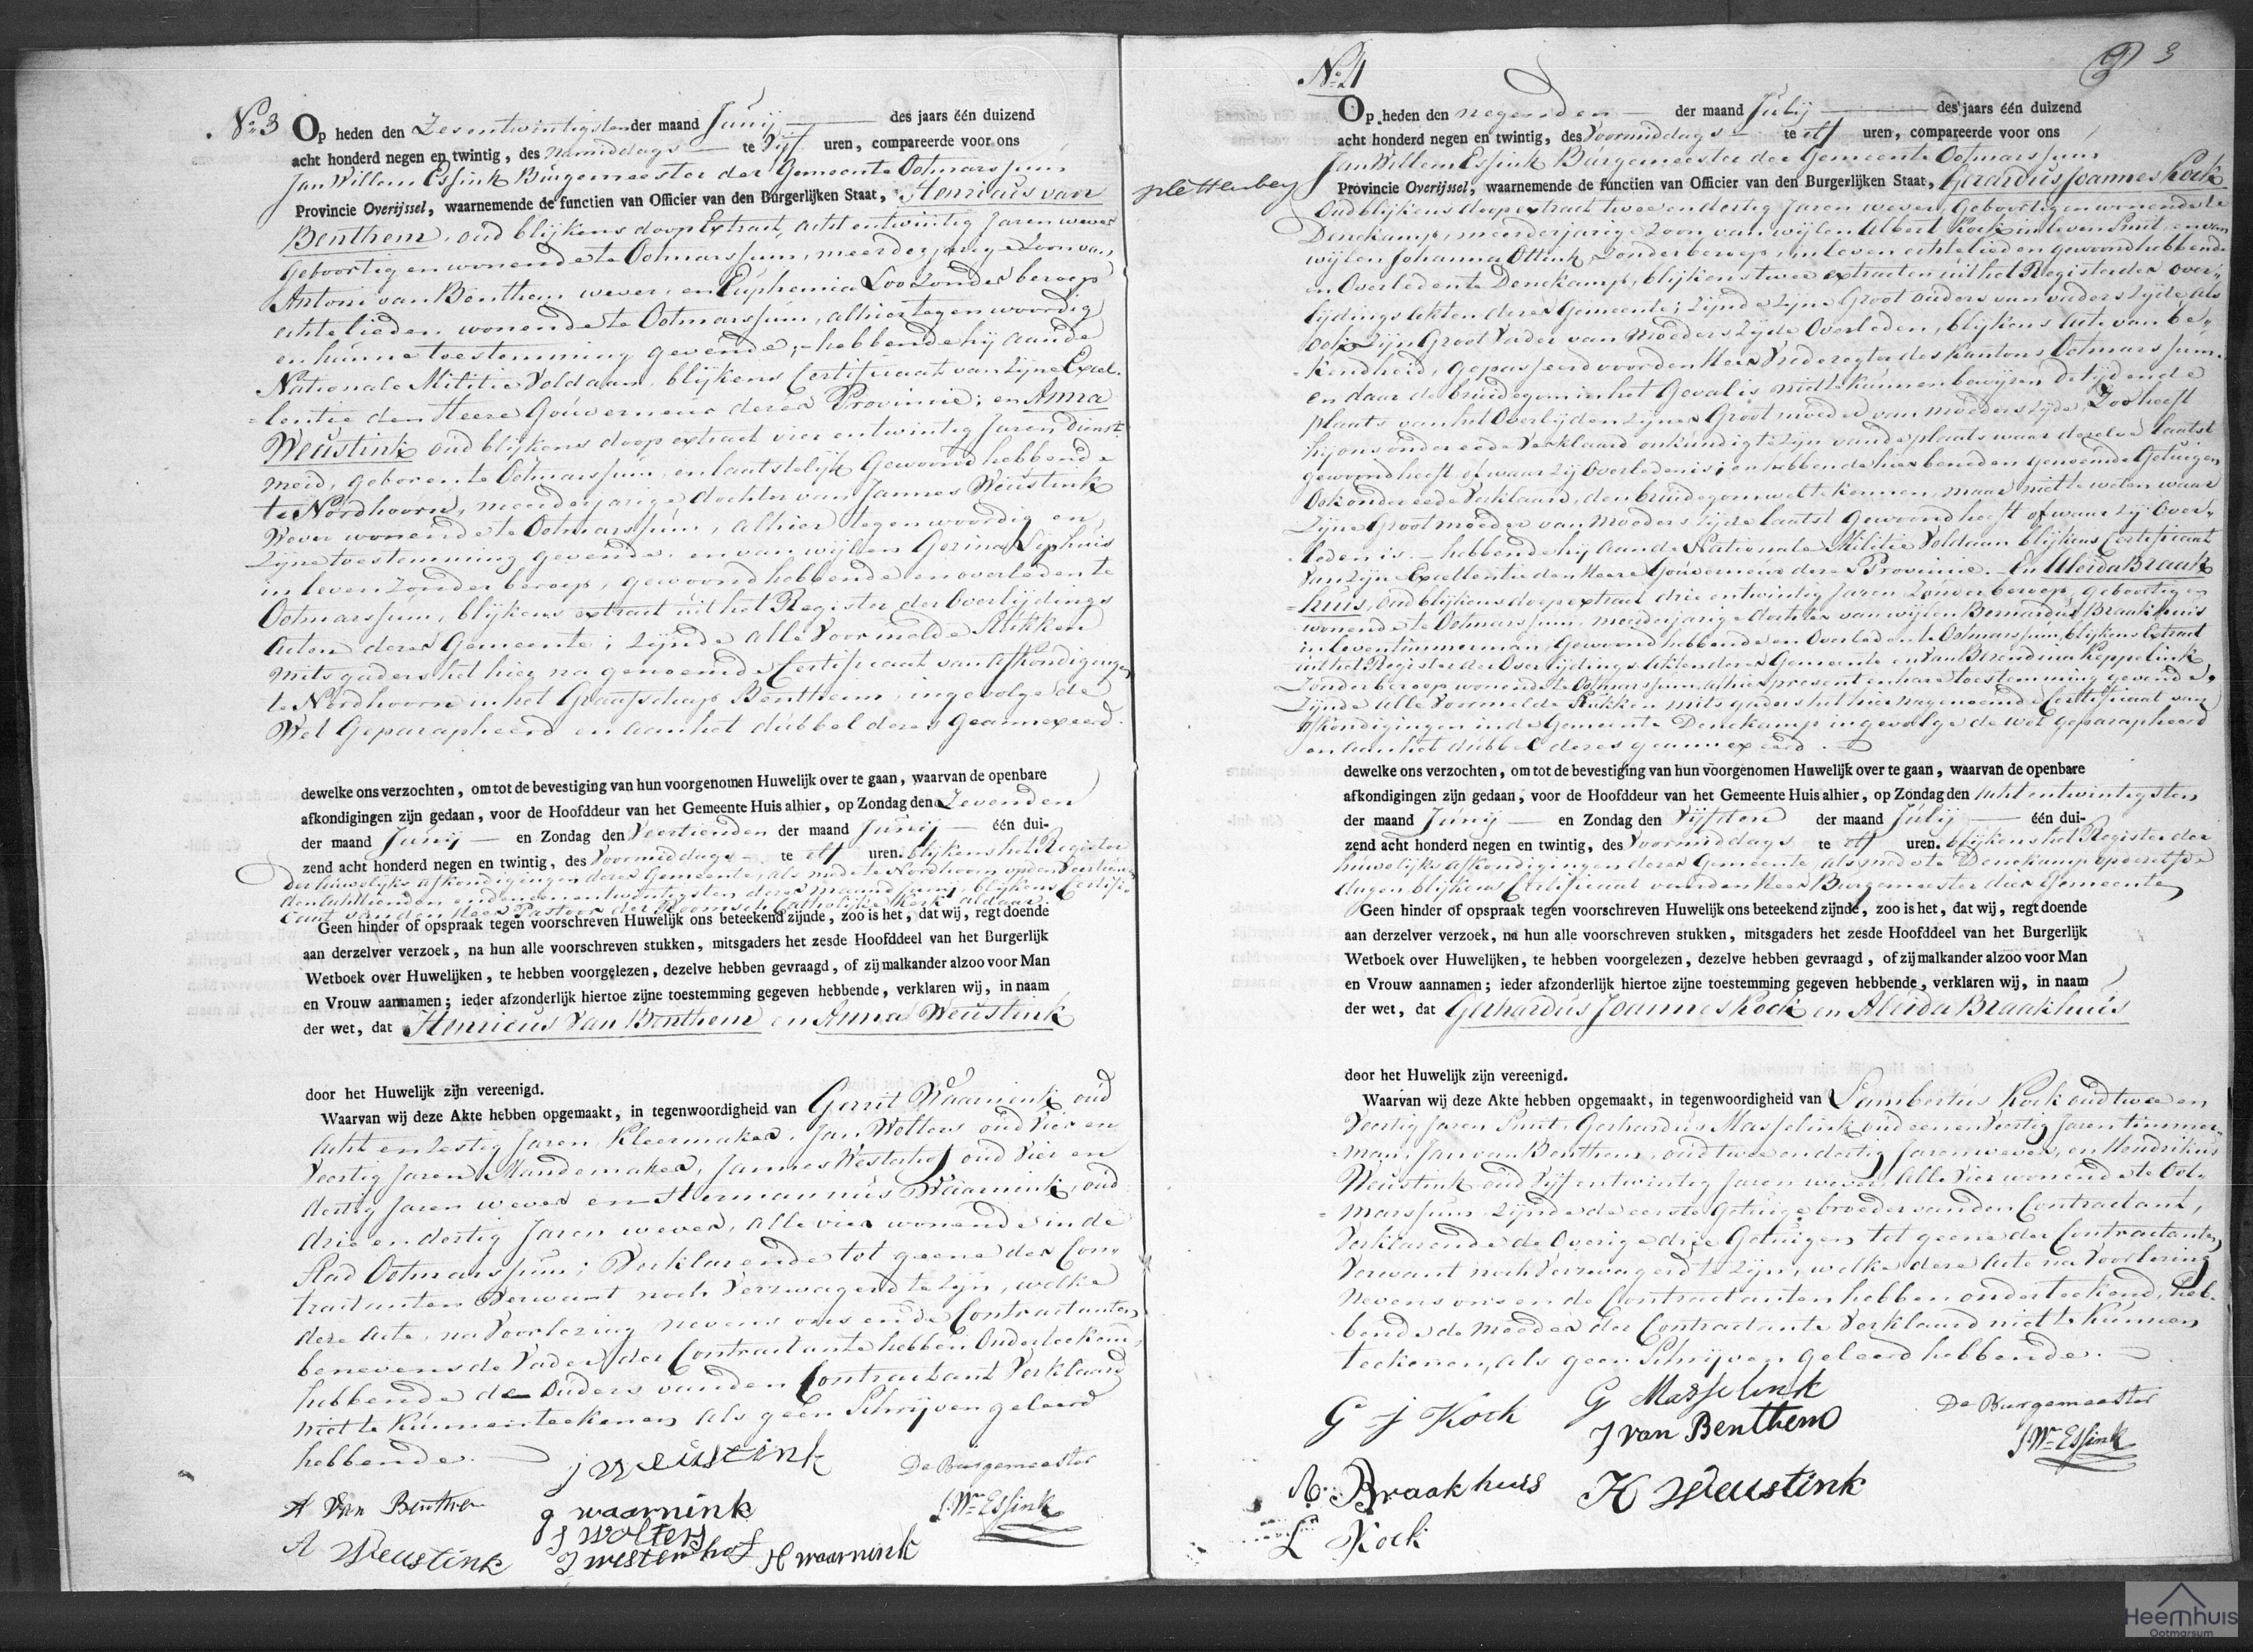 No. 3 Op heden den Zesentwintigsten der maand Junij des jaars één duizend
acht honderd negen en twintig, des namiddags te Vijf uren, compareerde voor ons
Jan Willem Essink Burgemeester der Gemeente Ootmarssum
Provincie Overijssel, waarnemende de functien van Officier van den Burgerlijken Staat, Henricus van
Benthem, oud blijkens doop Extract, acht en twintig Jaren wever
geboortig en wonende te Ootmarssum, meerderjarige Zoon van
Antoni van Benthem wever, en Euphemia Loo Zonder beroep
echtelieden wonende te Ootmarssum, alhier tegenwoordig
en hunne toestemming gevende; hebbende hij aan de
Nationale Militie Voldaan, blijkens Certificaat van Zijne Excel-
=lentie den Heere Gouverneur dezer Provincie; en Anna
Weustink oud blijkens doop extract vier en twintig Jaren dienst-
meid, geboren te Ootmarssum, en laatstelijk Gewoond hebbende
te Nordhoorn, meerderjarige dochter van Jannes Weustink
Wever wonende te Ootmarssum, alhier tegenwoordig en
Zijne toestemming gevende, en van wijlen Gezina
in leven Zonder beroep, gewoond hebbende en overleden te
Ootmarssum, blijkens extract uit het Register der Overlijdings
Acten dezer Gemeente; Zijnde alle Voormelde Stukken
mitsgaders het hier na genoemde Certificaat van Afkondigingen
te Nordhoorn in het Graafschap Bentheim, ingevolge de
Wet Geparapheerd en aan het dubbel dezes geannexeerd.
dewelke ons verzochten, om tot de bevestiging van hun voorgenomen Huwelijk over te gaan, waarvan de openbare
afkondigingen zijn gedaan, voor de Hoofddeur van het Gemeente Huis alhier, op Zondag den Zevenden
der maand Junij en Zondag den Veertienden der maand Junij één dui-
zend acht honderd negen en twintig, des Voormiddags te elf uren. blijkens het Register
der huwelijks afkondigingen dezer Gemeente, als mede te Nordhoorn op den Veertienden
den Achttienden en den een en twintigsten dezer maand Junij, blijkens Certifi-
caat van den Heer Pastoor der Roomsch Catholijke Kerk aldaar.
Geen hinder of opspraak tegen voorschreven Huwelijk ons beteekend zijnde, zoo is het, dat wij, regt doende
aan derzelver verzoek, na hun alle voorschreven stukken, mitsgaders het zesde Hoofddeel van het Burgerlijk
Wetboek over Huwelijken, te hebben voorgelezen, dezelve hebben gevraagd, of zij malkander alzoo voor Man
en Vrouw aannamen; ieder afzonderlijk hiertoe zijne toestemming gegeven hebbende, verklaren wij, in naam
der wet, dat Henricus Van Benthem en Anna Weustink
door het Huwelijk zijn vereenigd.
Waarvan wij deze Akte hebben opgemaakt, in tegenwoordigheid van Gerrit Waarnink oud
acht en Zestig Jaren Kleermaker, Jan Wolters oud Vier en
Veertig Jaren Mandemaker, Jannes Westerhof oud Vier en
dertig Jaren wever en Hermannus Waarnink, oud
drie en dertig Jaren wever, alle vier wonende in de
Stad Ootmarssum; Verklarende tot geene der Con-
tractanten Verwant noch Verzwagerd te Zijn, welke
deze Acte, na Voorlezing nevens ons en de Contractanten
benevens de Vader der Contractante hebben Onderteekend,
hebbende de Ouders van den Contractant Verklaard
niet te kunnen teekenen als geen Schrijven geleerd
hebbende.
J Weustink
De Burgemeester
H Van Benthem
g waarnink
J. Wm Essink
J Wolters
A Weustink
J westerhof H waarnink
No. 4
3
Op heden den negenden der maand Julij des jaars één duizend
acht honderd negen en twintig, des Voormiddags te elf uren, compareerde voor ons
Jan Willem Essink Burgemeester der Gemeente Ootmarssum
plettenberg
Provincie Overijssel, waarnemende de functien van Officier van den Burgerlijken Staat, Gerardus Joannes Kock
Oud blijkens doop extract twee en dertig Jaren wever, Geboortig en wonende te
Denekamp, meerderjarige Zoon van wijlen Albert Kock in leven Smit, en van
wijlen Johanna Ottink Zonder beroep, in leven echtelieden gewoond hebbende
en Overleden te Denekamp, blijkens twee extracten uit het Register der over-
lijdings Akten dezer Gemeente; Zijnde Zijne Groot ouders van vaders Zijde als
ook Zijn Groot Vader van Moeders Zijde Overleden, blijkens Acte van be-
=kendheid, gepasseerd voor den Heer Vrederegter des Kantons Ootmarssum.
en daar de bruidegom in het Geval is niet te kunnen bewijzen, de tijd en de
plaats van het Overlijden Zijner Grootmoeder van moeders Zijde, Zoo heeft
hij ons onder eede Verklaard onkundig te Zijn van de plaats waar dezelve laatst
gewoond heeft, of waar Zij Overleden is; en hebbende hier beneden genoemde Getuigen
Ook onder eede Verklaard, den bruidegom wel te kennen, maar niet te weten waar
Zijne Grootmoeder van Moeders Zijde laatst Gewoond heeft of waar Zij Over-
leden is. hebbende hij aan de Nationale Militie Voldaan blijkens Certificaat
Van Zijne Excellentie den Heere Gouverneur dezer Provincie. En Aleida Braak
=huis, Oud blijkens doop extract drie en twintig Jaren Zonder beroep, geboortig en
wonende te Ootmarssum, meerderjarige dochter van wijlen Bernardus Braakhuis
in leven timmerman, Gewoond hebbende en Overleden te Ootmarssum, blijkens Extract
uit het Register der Overlijdings Akten dezer Gemeente en van Berendina Keppelink,
Zonder beroep wonende te Ootmarssum, alhier present en hare toestemming gevende,
Zijnde alle Voormelde Stukken mitsgaders het hier nagenoemde Certificaat van
Afkondigingen in de Gemeente Denekamp ingevolge de wet geparapheerd
en aan het dubbel dezes geannexeerd.
dewelke ons verzochten, om tot de bevestiging van hun voorgenomen Huwelijk over te gaan, waarvan de openbare
afkondigingen zijn gedaan, voor de Hoofddeur van het Gemeente Huis alhier, op Zondag den Acht en twintigsten
der maand Junij en Zondag den Vijfden der maand Julij één dui-
zend acht honderd negen en twintig, des Voormiddags te elf uren. blijkens het Register der
huwelijks afkondigingen dezer Gemeente, als mede te Denekamp op dezelfde
dagen blijkens Certificaat van den Heer Burgemeester dier Gemeente
Geen hinder of opspraak tegen voorschreven Huwelijk ons beteekend zijnde, zoo is het, dat wij, regt doende
aan derzelver verzoek, na hun alle voorschreven stukken, mitsgaders het zesde Hoofddeel van het Burgerlijk
Wetboek over Huwelijken, te hebben voorgelezen, dezelve hebben gevraagd, of zij malkander alzoo voor Man
en Vrouw aannamen; ieder afzonderlijk hiertoe zijne toestemming gegeven hebbende, verklaren wij, in naam
der wet, dat Gerhardus Joannes Kock en Aleida Braakhuis
door het Huwelijk zijn vereenigd.
Waarvan wij deze Akte hebben opgemaakt, in tegenwoordigheid van Lambertus Kock oud twee en
Veertig Jaren Smit, Gerhardus Masselink oud een en Veertig Jaren timmer-
=man, Jan van Benthem, oud twee en dertig Jaren wever, en Hendrikus
Weustink oud Vijf en twintig Jaren wever, alle Vier wonende te Oot-
=marssum Zijnde de eerste Getuige broeder van den Contractant,
Verklarende de Overige drie Getuigen tot geene der Contractanten
Verwant noch Verzwagerd te Zijn, welke deze Acte na Voorlezing
nevens ons en de Contractanten hebben onderteekend, heb-
bende de Moeder der Contractante Verklaard niet te kunnen
teekenen, als geen Schrijven geleerd hebbende.
G J Kock
G Masselink
De Burgemeester
J van Benthem
J. Wm Essink
A. Braakhuis
H Weustink
L Kock
Heemhuis
Ootmarsum